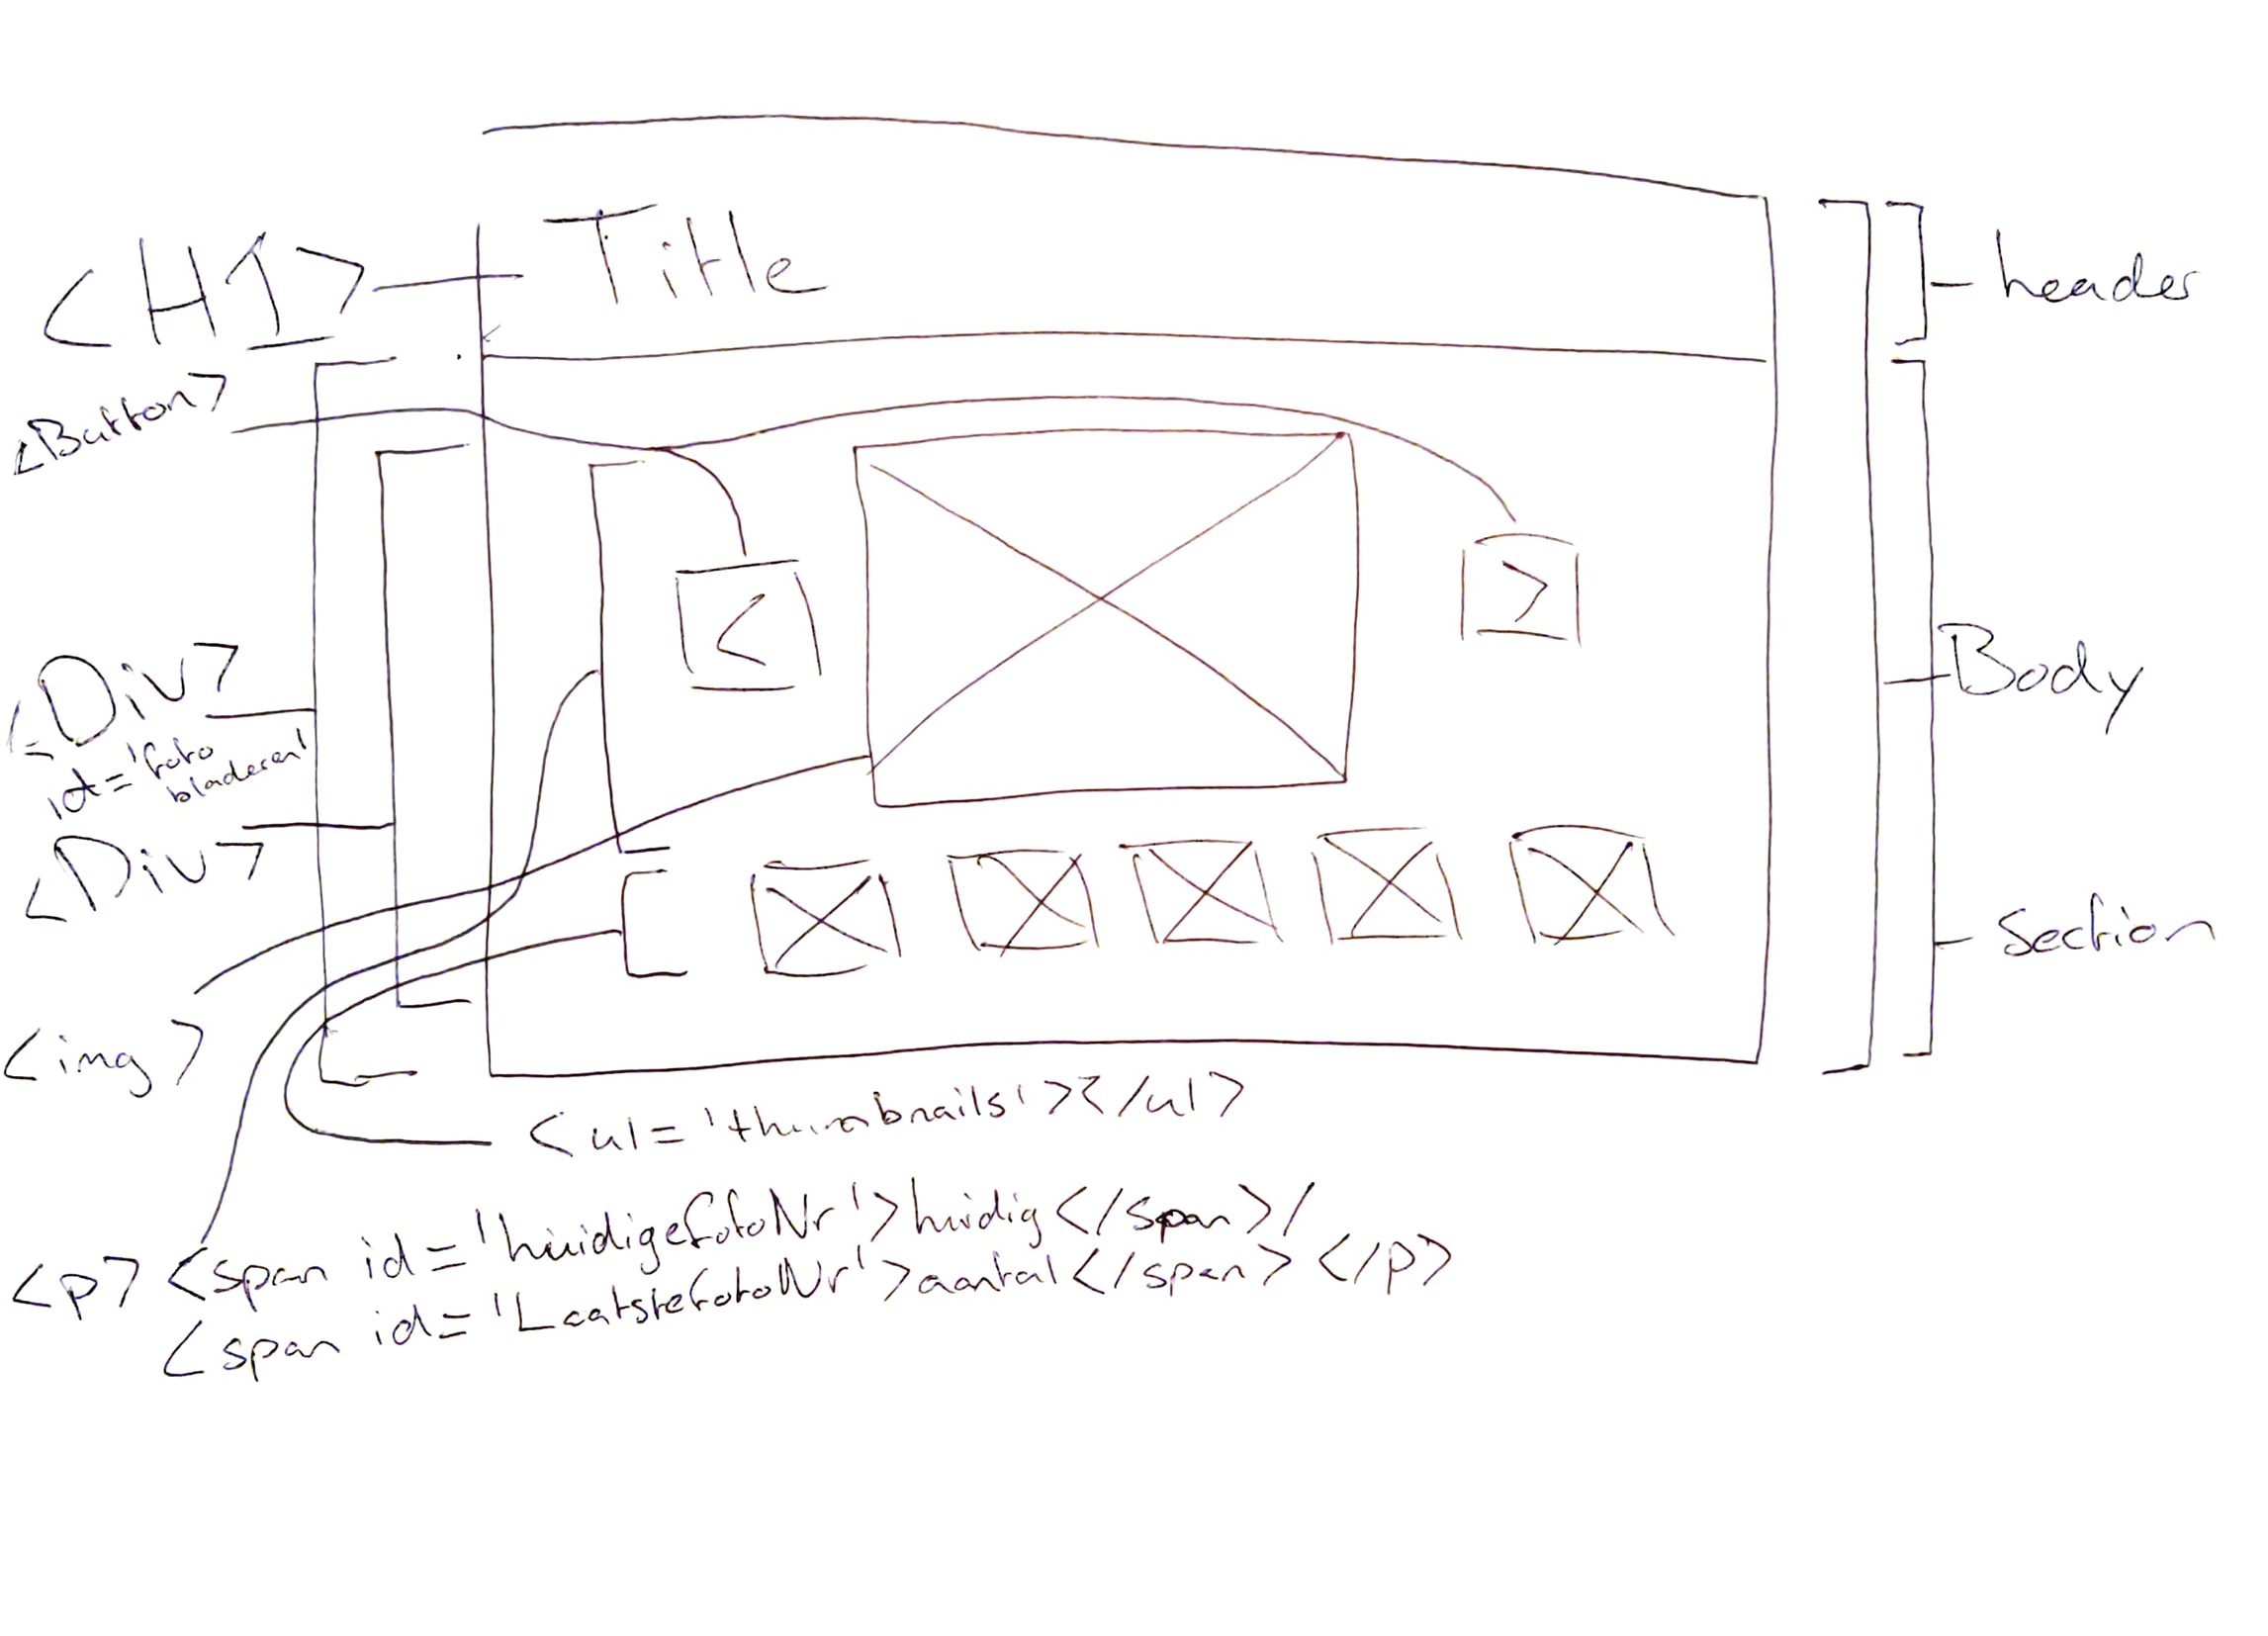 Title
<H1>
header
<Button>
<
>
<Div>
id='foto
bladeren'
<Div>
Body
Section
<img>
<ul='thumbnails'></ul>
<p> <span id='huidigefotoNr'>huidig</span>/
<span id='LaatstefotoNr'>aantal</span> </p>